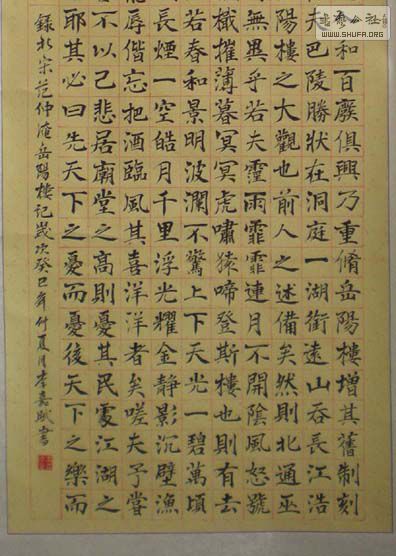 和百廢俱興乃重脩岳陽樓增其舊制刻
夫巴陵勝狀在洞庭一湖銜遠山吞長江浩
陽樓之大觀也前人之述備矣然則北通巫
無異乎若夫霪雨霏霏連月不開陰風怒號
檝摧薄暮冥冥虎嘯猿啼登斯樓也則有去
若春和景明波瀾不驚上下天光一碧萬頃
長煙一空皓月千里浮光耀金靜影沉璧漁
辱偕忘把酒臨風其喜洋洋者矣嗟夫予嘗
不以己悲居廟堂之高則憂其民處江湖之
耶其必曰先天下之憂而憂後天下之樂而
錄北宋范仲淹岳陽樓記歲次癸巳年仲夏月李嘉書
WWW.SHUFA.ORG